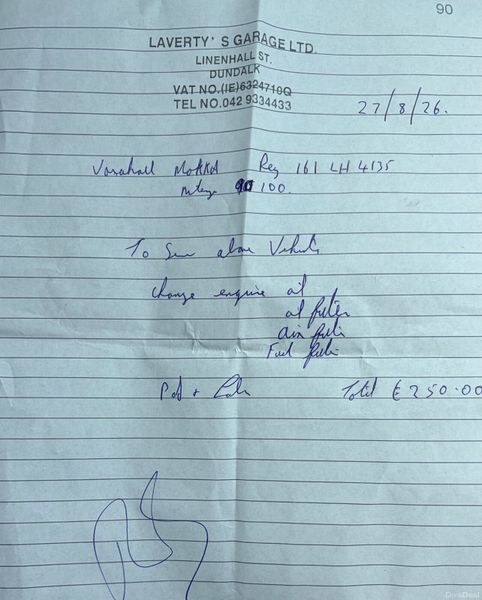 90
LAVERTY'S GARAGE LTD.
LINENHALL ST.
DUNDALK
VAT NO.(IE)6324710Q
TEL NO.042 9334433
27/8/26.
Vauxhall MOKKA Reg 161 LH 4135
100.
To above Vehicle
change engine oil
oil filter
air filter
Fuel filter
Total €250.00
DoneDeal